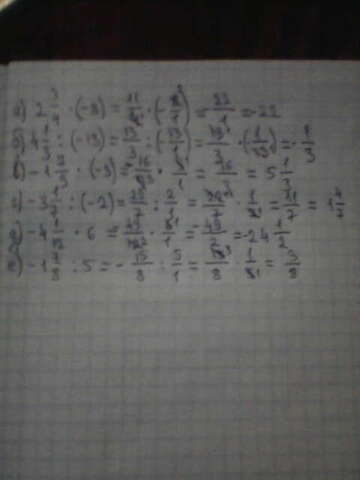 а) 2 3/4 · (-8) = 11/4 · (-8/1) = 22/1 = -22
б) 4 1/3 : (-13) = 13/3 : (-13/1) = 13/3 · (1/13) = -1/3
в) -1 · (-3) = 16/ · /1 = 16/3 = 5 1/3
г) -3 1/7 : (-2) = 22/7 : 2/1 = 22/7 · 1/2 = 11/7 = 1 4/7
д) -4 1/12 · 6 = 49/12 · 6/1 = -49/2 = -24 1/2
е) -1 7/8 : 5 = - 15/8 : 5/1 = 15/8 · 1/5 = 3/8